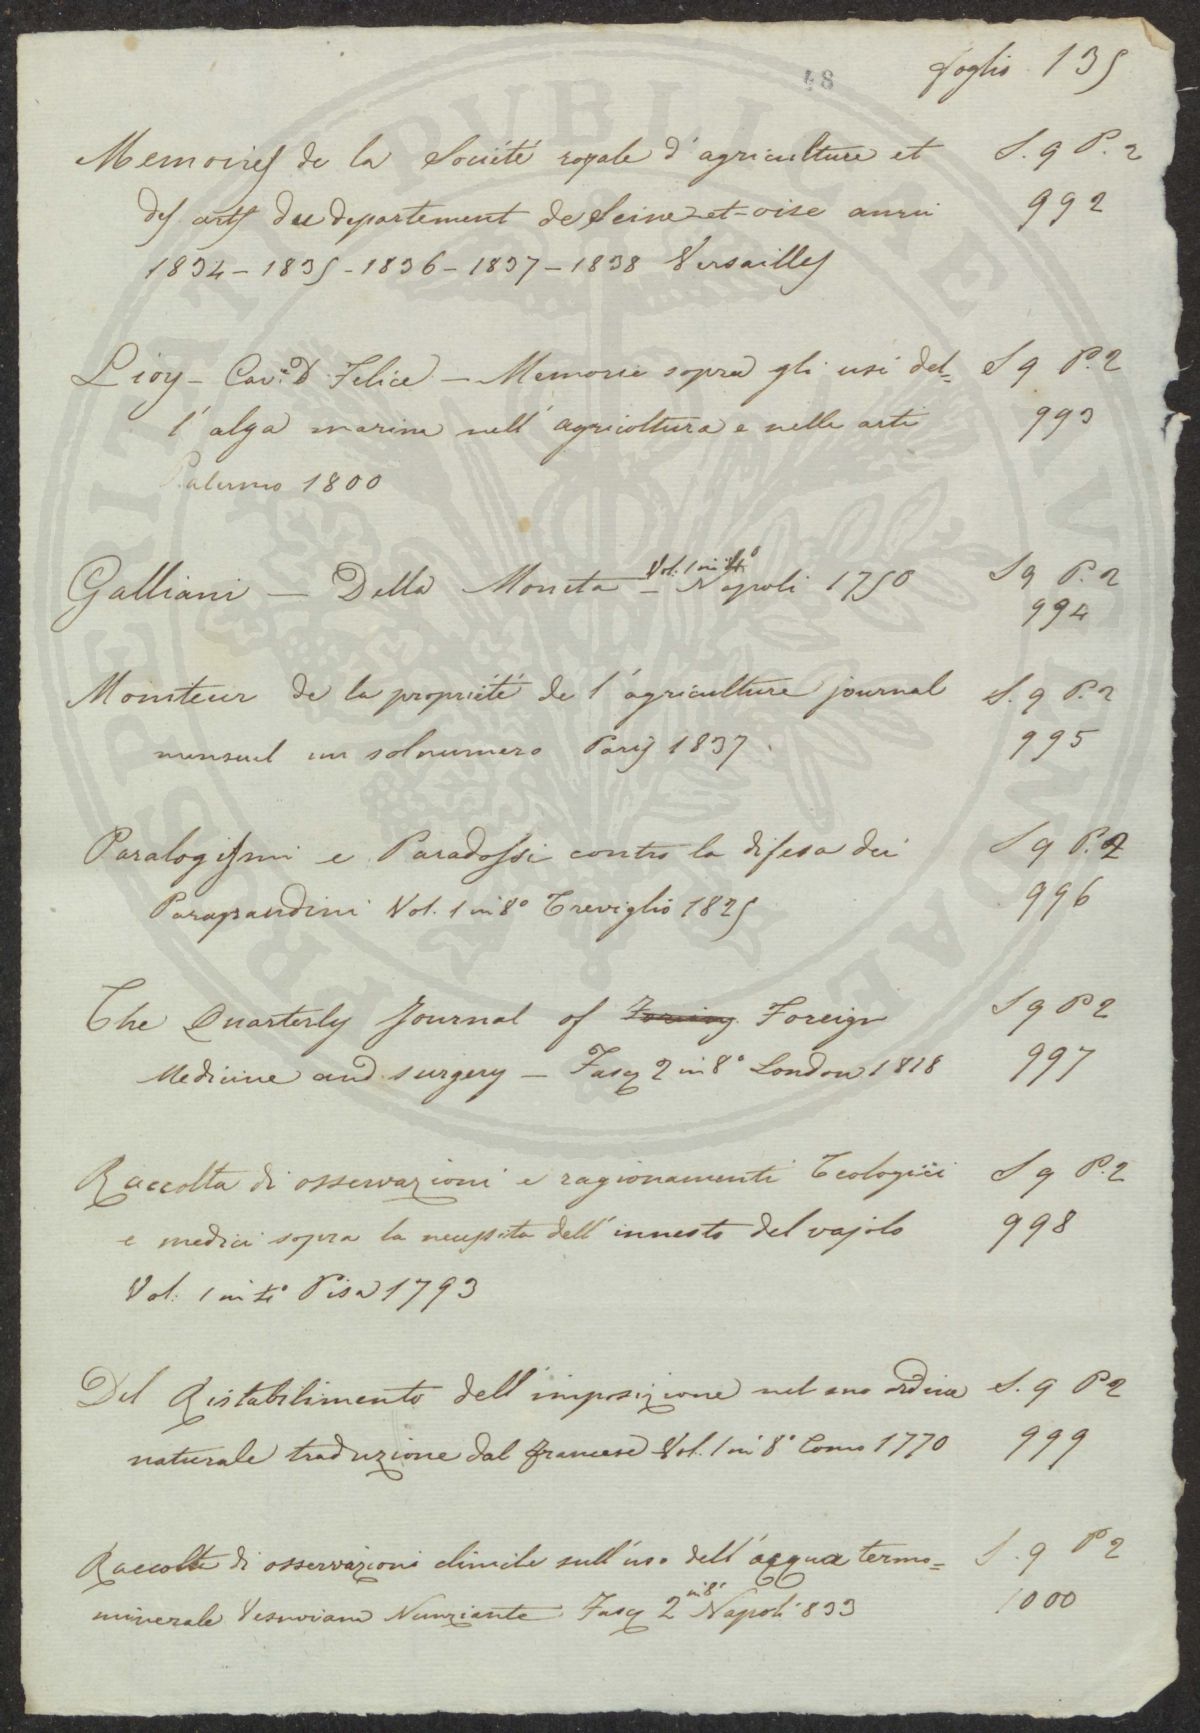 foglio 135
48
Memoires de la Société royale d'agriculture et S. 9 P. 2
des arts du departement de Seine-et-oise anni 992
1834-1835-1836-1837-1838 Versailles
Lioy - Cav.r D Felice - Memorie sopra gli usi del= S 9 P. 2
l'alga marina nell'agricoltura e nelle arti 993
Palermo 1800
Galliani - Della Moneta - Vol. 1 in 4° Napoli 1750 S 9 P. 2
994
Moniteur de la propriété de l'agriculture journal S. 9 P. 2
mensuel un sol numero Paris 1837 995
Paralogismi e Paradossi contro la difesa dei S 9 P. 2
Paragrandini Vol. 1 in 8° Treviglio 1825 996
The Quarterly Journal of Foreign S 9 P 2
Medicine and surgery - Fasc 2 in 8° London 1818 997
Raccolta di osservazioni e ragionamenti Teologici S 9 P. 2
e medici sopra la necessita dell'innesto del vajolo 998
Vol. 1 in 4° Pisa 1793
Del Ristabilimento dell'imposizione nel suo ordine S. 9 P 2
naturale traduzione dal francese Vol. 1 in 8° Como 1770 999
Raccolte di osservazioni cliniche sull'uso dell'acqua termo= S. 9 P 2
minerale Vesuviana Nunziante Fasc 2 in 8° Napoli 833 1000
PROSPERITATI PUBLICAE AUGENDAE